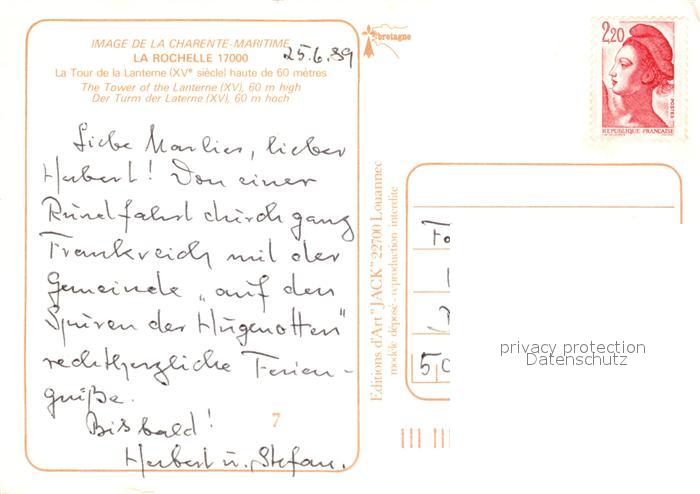 IMAGE DE LA CHARENTE-MARITIME
LA ROCHELLE 17000
25.6.89
La Tour de la Lanterne (XVe siècle) haute de 60 mètres
The Tower of the Lanterne (XV), 60 m high
Der Turm der Laterne (XV), 60 m hoch
Liebe Marlies, lieber
Hubert! Von einer
Rundfahrt durch ganz
Frankreich mit der
Gemeinde „auf den
Spuren der Hugenotten"
recht herzliche Ferien-
grüße.
Bis bald!
Hubert u. Stefan.
7
bretagne
Editions d'Art "JACK" 22700 Louannec
modèle déposé - reproduction interdite
2,20
POSTES
REPUBLIQUE FRANÇAISE
privacy protection
Datenschutz